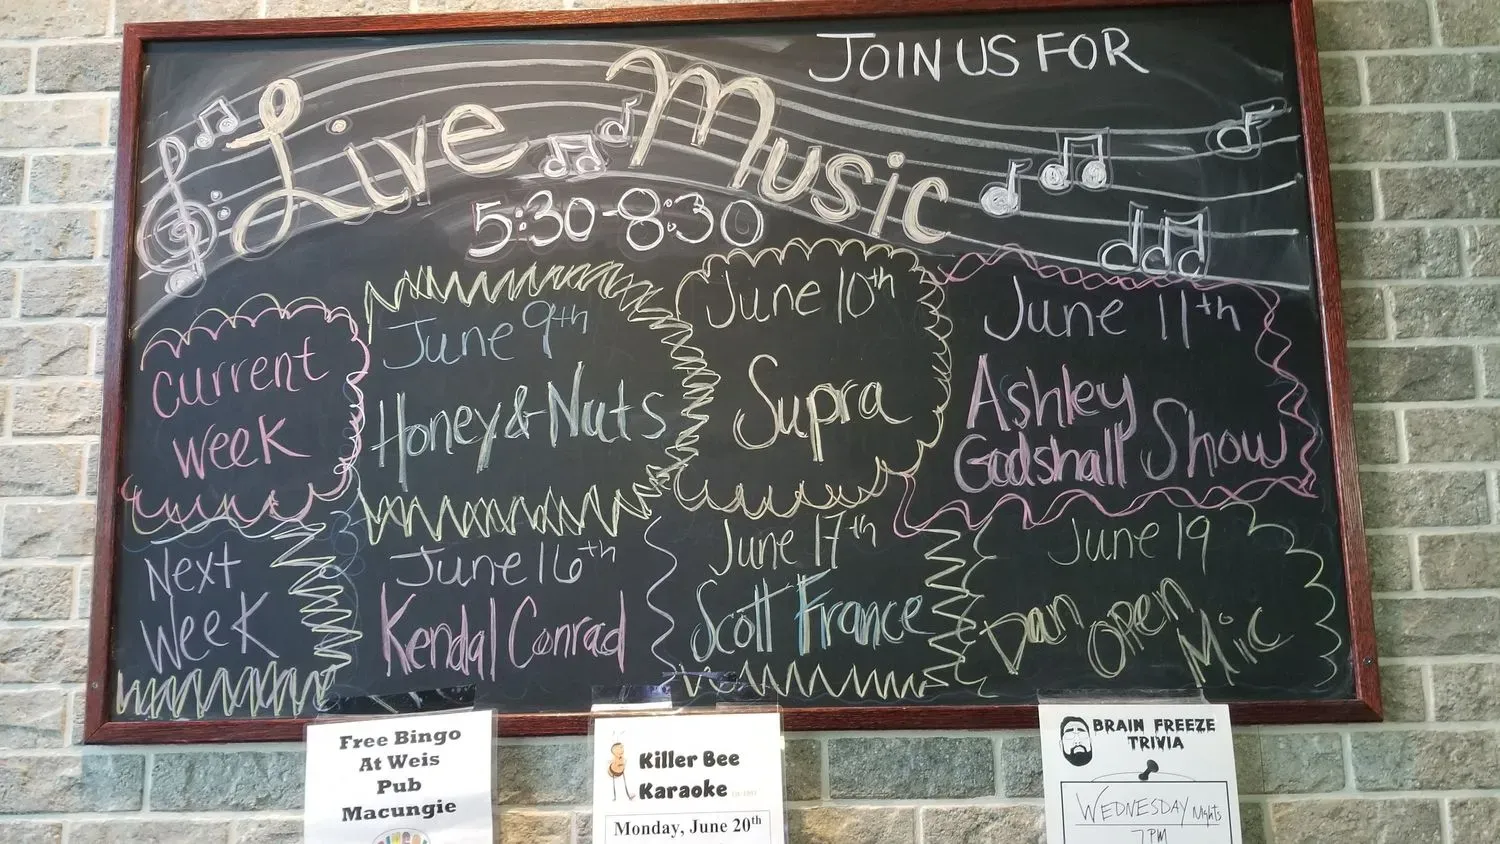 JOIN US FOR
Live Music
5:30-8:30
Current
Week
June 9th
Honey & Nuts
June 10th
Supra
June 11th
Ashley
Godshall Show
Next
Week
June 16th
Kendal Conrad
June 17th
Scott France
June 19
Dan Open Mic
Free Bingo
At Weis
Pub
Macungie
Killer Bee
Karaoke
Monday, June 20th
BRAIN FREEZE
TRIVIA
WEDNESDAY Nights
7PM